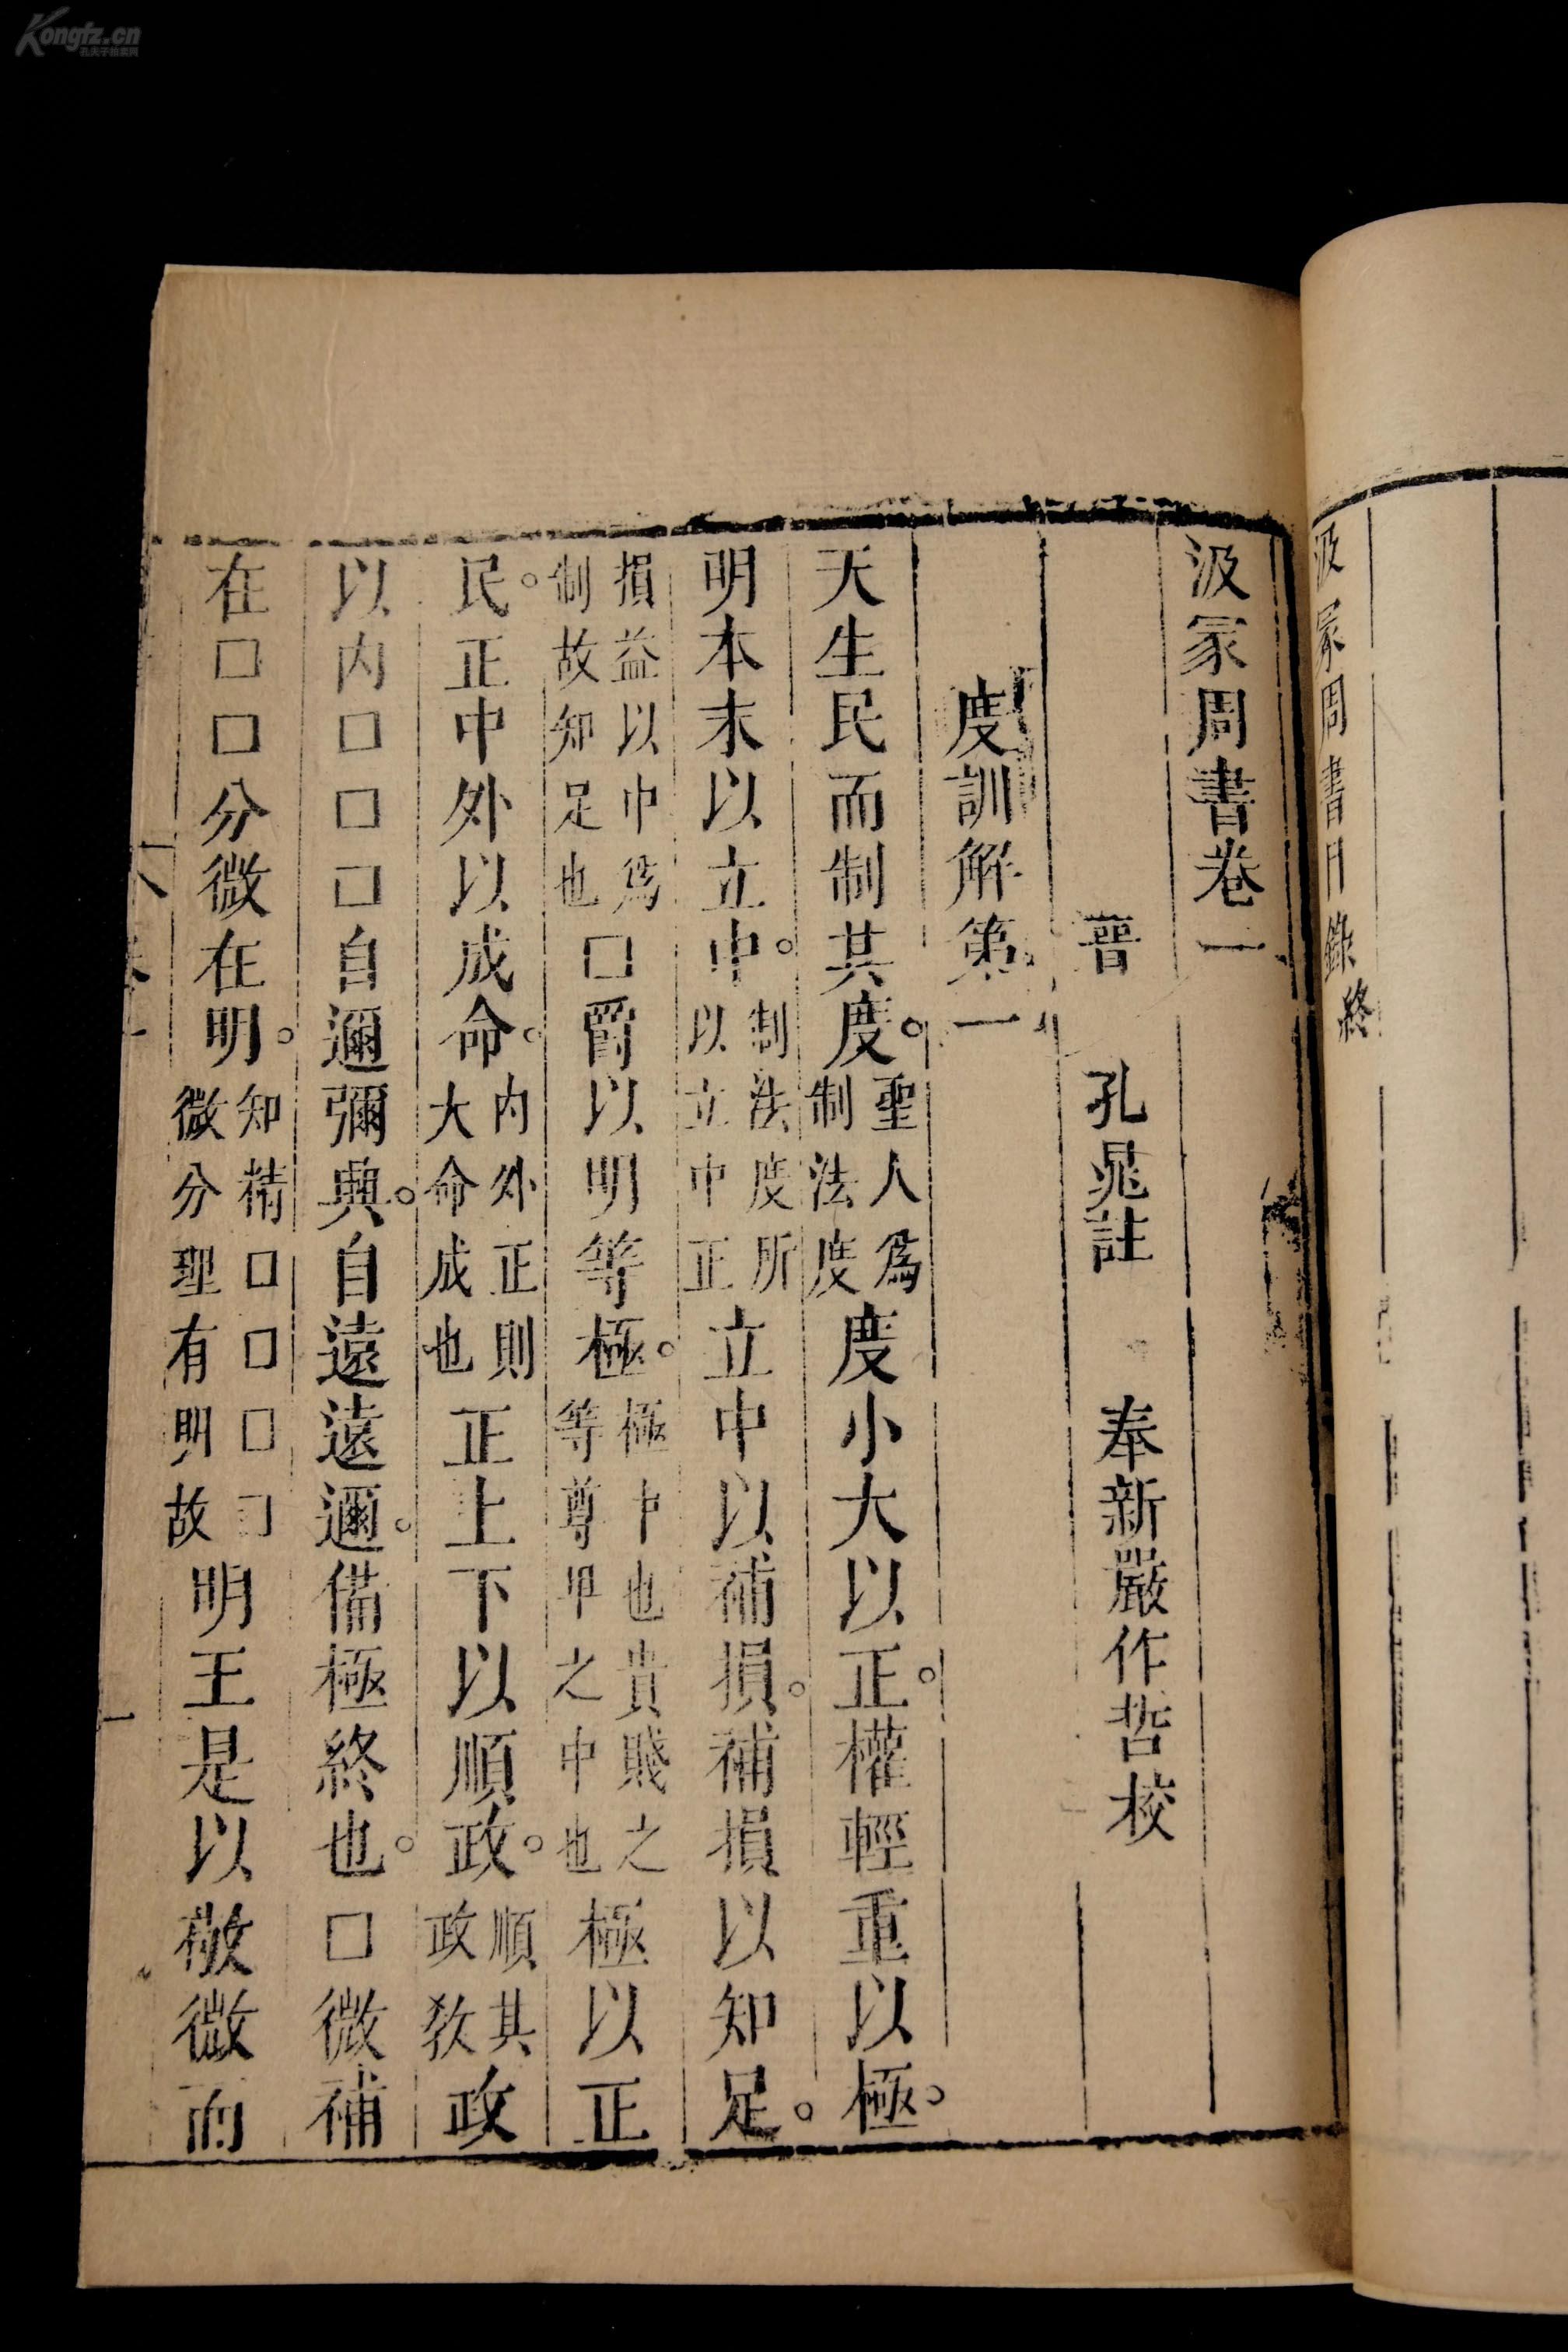 Kongfz.cn
孔夫子拍卖网
汲冢周書目錄終
汲冢周書卷一
晉 孔晁註 奉新嚴作哲校
度訓解第一
天生民而制其度。聖人爲制法度度小大以正。權輕重以極。
明本末以立中。制法度所以立中正立中以補損。補損以知足。
損益以中爲制故知足也□爵以明等極。極中也貴賤之等尊卑之中也極以正
民。正中外以成命。内外正則大命成也正上下以順政。順其政教政
以内□□□自邇彌典。自遠遠邇。備極終也。□微補
在□□分微在明。知精□□□□微分理有明故明王是以敬微而